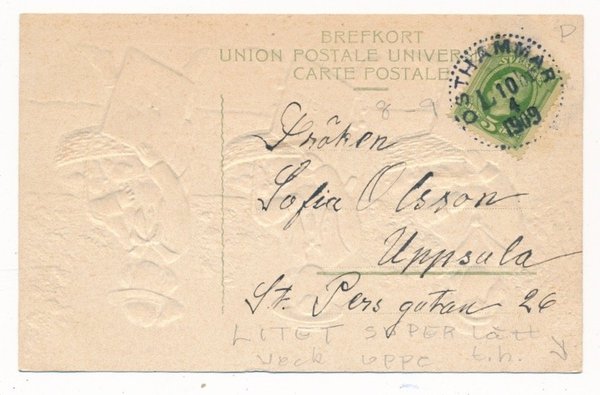 BREFKORT
UNION POSTALE UNIVER
CARTE POSTALE
ÖSTHAMMAR
10
4
1909
SVERIGE
5
8-9
D
Fröken
Sofia Olsson
Uppsala
St. Pers gatan 26
LITET SUPER lätt
veck uppe t.h.